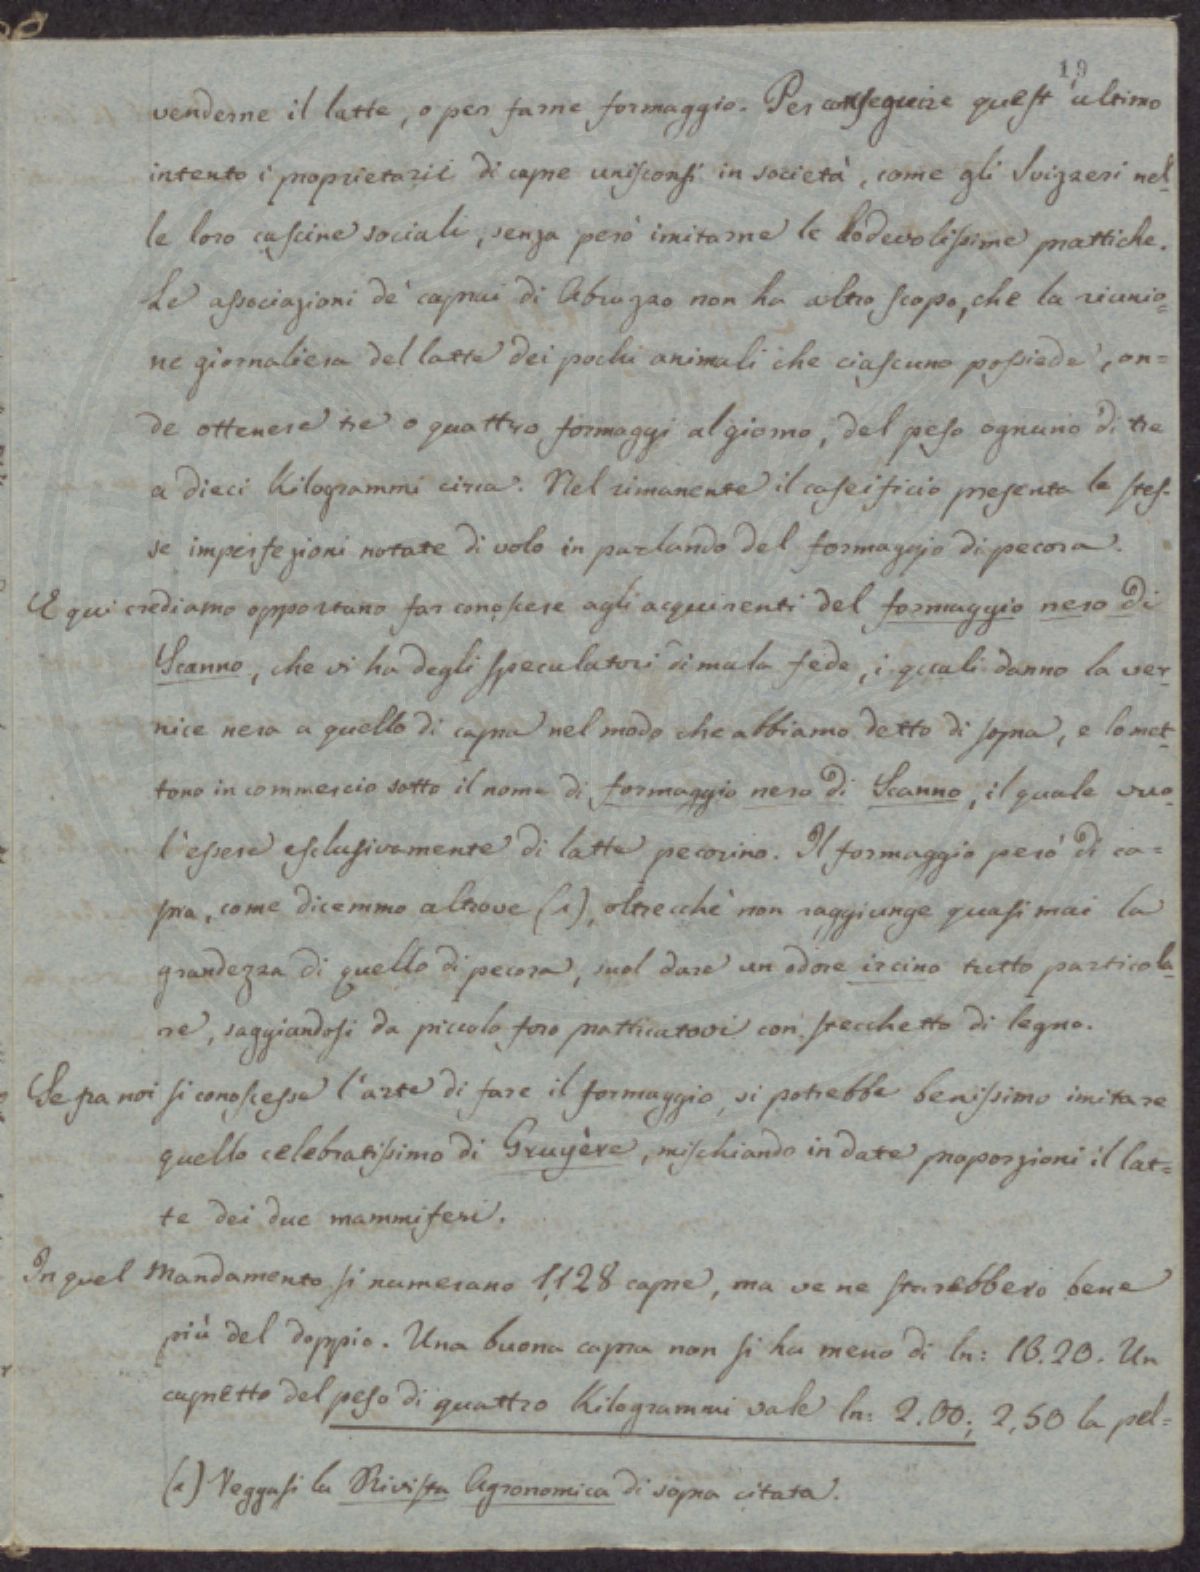 19
venderne il latte, o per farne formaggio. Per conseguire quest'ultimo
intento i proprietarii di capre unisconsi in società, come gli Svizzeri nel-
le loro cascine sociali, senza però imitarne le lodevolissime prattiche.
Le associazioni de' caprai di Abruzzo non ha altro scopo, che la riunio=
ne giornaliera del latte dei pochi animali che ciascuno possiede, on=
de ottenere tre o quattro formaggi al giorno, del peso ognuno di tre
a dieci Kilogrammi circa. Nel rimanente il caseificio presenta le stes-
se imperfezioni notate di volo in parlando del formaggio di pecora.
E qui crediamo opportuno far conoscere agli acquirenti del formaggio nero di
Scanno, che vi ha degli speculatori di mala fede, i quali danno la ver-
nice nera a quello di capra nel modo che abbiamo detto di sopra, e lo met-
tono in commercio sotto il nome di formaggio nero di Scanno, il quale vuo-
l'essere esclusivamente di latte pecorino. Il formaggio però di ca=
pra, come dicemmo altrove (1), oltrecchè non raggiunge quasi mai la
grandezza di quello di pecora, suol dare un odore ircino tutto particola-
re, saggiandosi da piccolo foro pratticatovi con stecchetto di legno.
Se fra noi si conoscesse l'arte di fare il formaggio, si potrebbe benissimo imitare
quello celebratissimo di Gruyère, mischiando in date proporzioni il lat=
te dei due mammiferi.
In quel Mandamento si numerano 1,128 capre, ma ve ne starebbero bene
più del doppio. Una buona capra non si ha meno di ln: 16.20. Un
capretto del peso di quattro Kilogrammi vale ln: 2.00; 2,50 la pel=
(1) Veggasi la Rivista Agronomica di sopra citata.